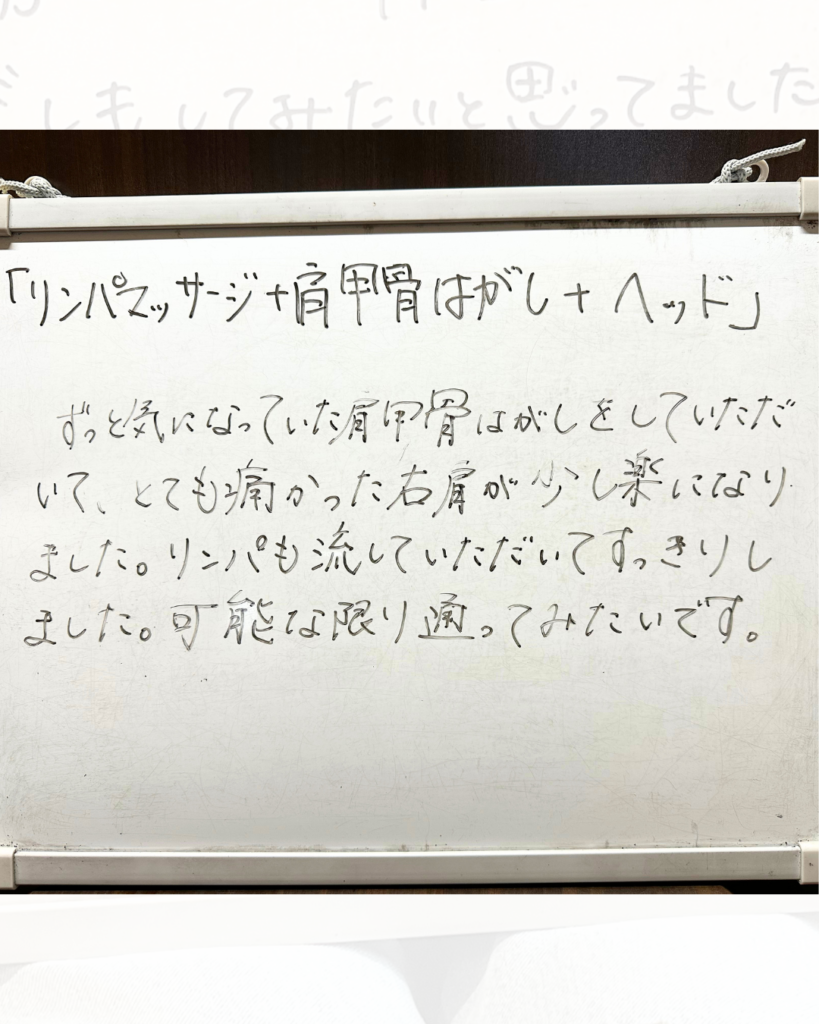 しもしてみたいと思ってました
「リンパマッサージ+肩甲骨はがし+ヘッド」
ずっと気になっていた肩甲骨はがしをしていただ
いて、とても痛かった右肩が少し楽になり
ました。リンパも流していただいてすっきりし
ました。可能な限り通ってみたいです。